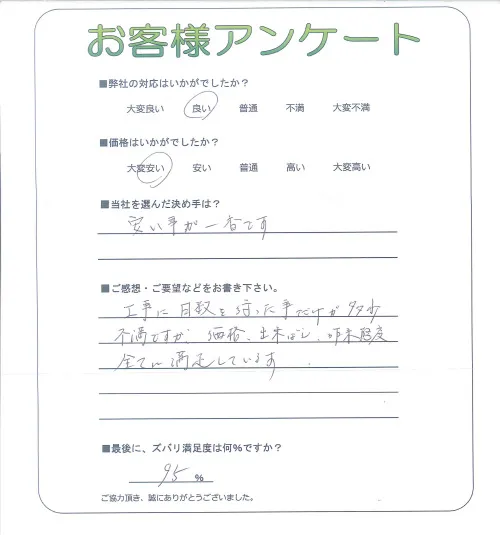 お客様アンケート
■弊社の対応はいかがでしたか？
大変良い 良い 普通 不満 大変不満
■価格はいかがでしたか？
大変安い 安い 普通 高い 大変高い
■当社を選んだ決め手は？
安い事が一番です
■ご感想・ご要望などをお書き下さい。
工事に日数を待った事だけが多少
不満ですが、価格、出来ばえ、 態度
全てに満足しています.
■最後に、ズバリ満足度は何%ですか？
95 %
ご協力頂き、誠にありがとうございました。